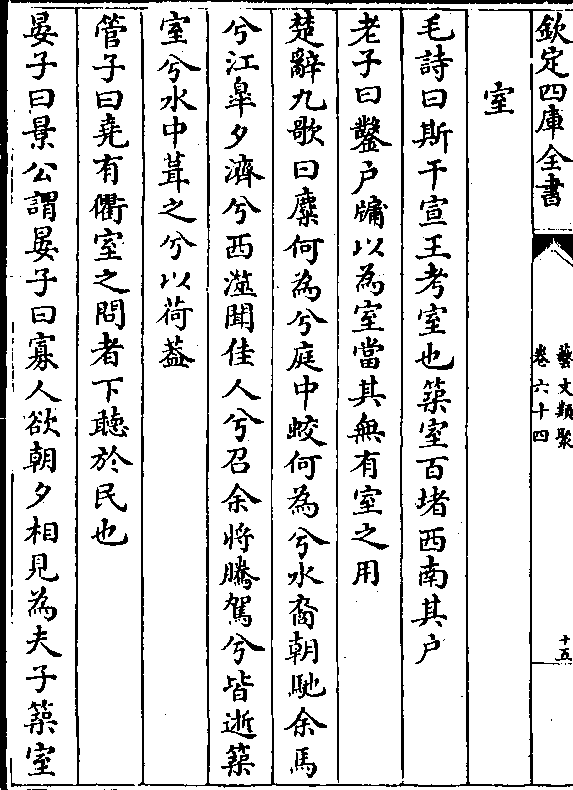 欽定四庫全書
藝文類聚
卷六十四
十五
室
毛詩曰斯干宣王考室也築室百堵西南其戶
老子曰鑿戶牖以為室當其無有室之用
楚辭九歌曰麋何為兮庭中蛟何為兮水裔朝馳余馬
兮江臯夕濟兮西澨聞佳人兮召余將騰駕兮皆逝築
室兮水中葺之兮以荷蓋
管子曰堯有衢室之問者下聽於民也
晏子曰景公謂晏子曰寡人欲朝夕相見為夫子築室